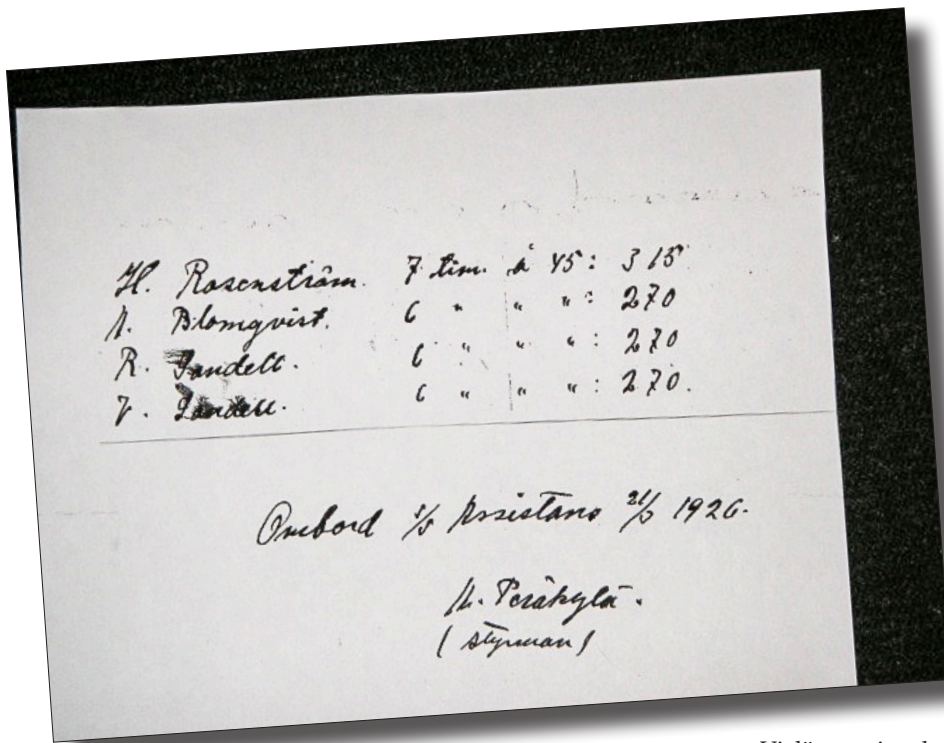 H. Rosenström. 7 tim. à 45: 315
A. Blomqvist. 6 " " ": 270
R. Sandell. 6 " " ": 270
J. Sandell. 6 " " ": 270.
Ombord s/s Assistans 21/5 1926.
A. Peräkylä.
(styrman)